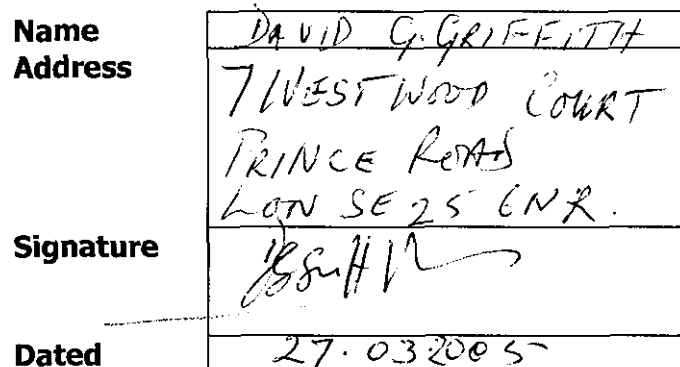 Name DAVID G. GRIFFITH
Address 7 WESTWOOD COURT
PRINCE ROAD
LON SE25 6NR.
Signature
Dated 27.03.2005